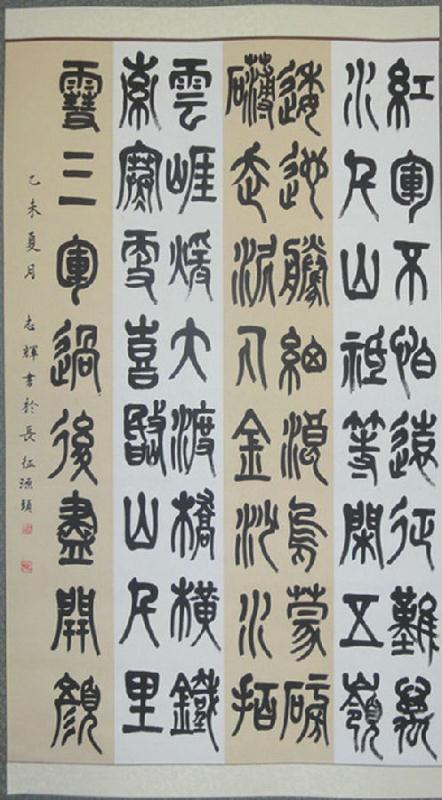 紅軍不怕遠征難萬
水千山祗等閑五嶺
逶迤騰細浪烏蒙磅
礴走泥丸金沙水拍
雲崖暖大渡橋橫鐵
索寒更喜岷山千里
雪三軍過後盡開顏
乙未夏月 志輝書於長征源頭